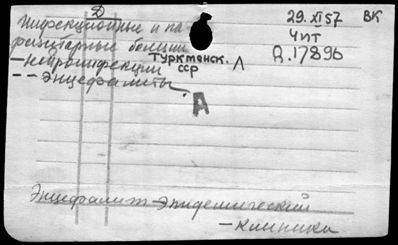 Д
Инфекционные и па-
разитарные болезни
– Нейроинфекции
– – Энцефалиты
Туркменск.
ССР
Л
А
29.XI57 ВК
Чит
Д.17896
Энцефалит эпидемический
– клиника